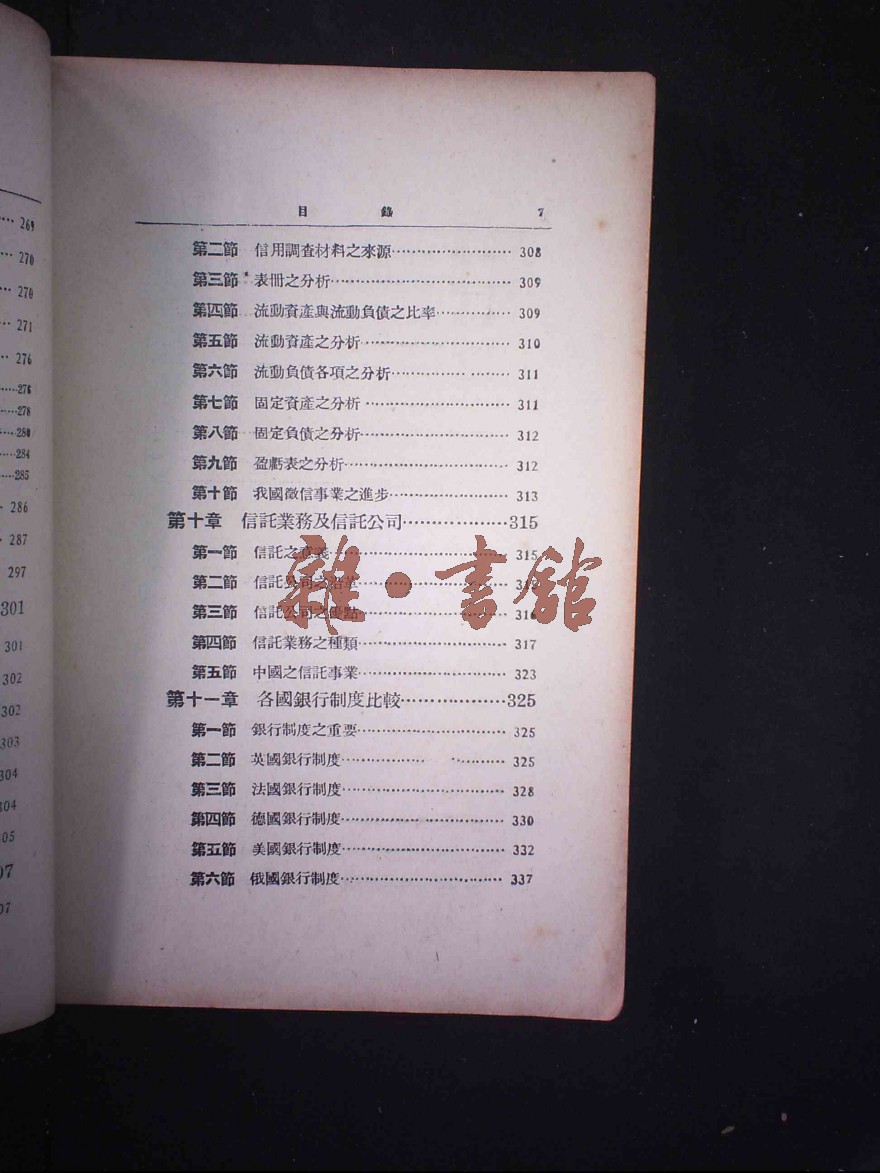 269
270
270
271
276
276
278
280
284
285
286
287
297
301
301
302
302
303
304
304
305
07
07
目 錄 7
第二節 信用調查材料之來源 308
第三節 表冊之分析 309
第四節 流動資產與流動負債之比率 309
第五節 流動資產之分析 310
第六節 流動負債各項之分析 311
第七節 固定資產之分析 311
第八節 固定負債之分析 312
第九節 盈虧表之分析 312
第十節 我國徵信事業之進步 313
第十章 信託業務及信託公司 315
第一節 信託之意義 315
第二節 信託公司之沿革
第三節 信託公司之優點 316
第四節 信託業務之種類 317
第五節 中國之信託事業 323
第十一章 各國銀行制度比較 325
第一節 銀行制度之重要 325
第二節 英國銀行制度 325
第三節 法國銀行制度 328
第四節 德國銀行制度 330
第五節 美國銀行制度 332
第六節 俄國銀行制度 337
雜·書館